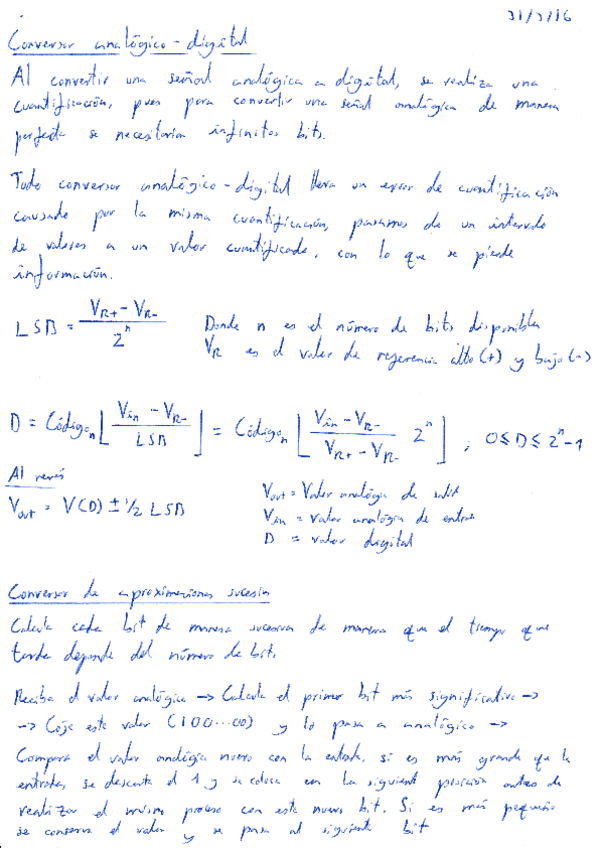 31/3/16
Conversor analógico-digital
Al convertir una señal analógica a digital, se realiza una
cuantificación, pues para convertir una señal analógica de manera
perfecta se necesitarían infinitos bits.
Todo conversor analógico-digital lleva un error de cuantificación
causado por la misma cuantificación, pasamos de un intervalo
de valores a un valor cuantificado, con lo que se pierde
información.
LSB = (V_R+ - V_R-) / 2^n
Donde n es el número de bits disponibles
V_R es el valor de referencia alto (+) y bajo (-)
D = Código_n ⌊ (V_in - V_R-) / LSB ⌋ = Código_n ⌊ (V_in - V_R-) / (V_R+ - V_R-) 2^n ⌋ ; 0 ≤ D ≤ 2^n-1
Al revés
V_out = V(D) ± 1/2 LSB
V_out = Valor analógico de salida
V_in = valor analógico de entrada
D = valor digital
Conversor de aproximaciones sucesivas
Calcula cada bit de manera sucesiva de manera que el tiempo que
tarda depende del número de bits.
Recibe el valor analógico → Calcula el primer bit más significativo →
→ Coje este valor (100...00) y lo pasa a analógico →
Compara el valor analógico nuevo con la entrada, si es más grande que la
entrada, se descarta el 1 y se coloca en la siguiente posición antes de
realizar el mismo proceso con este nuevo bit. Si es más pequeño
se conserva el valor y se pasa al siguiente bit